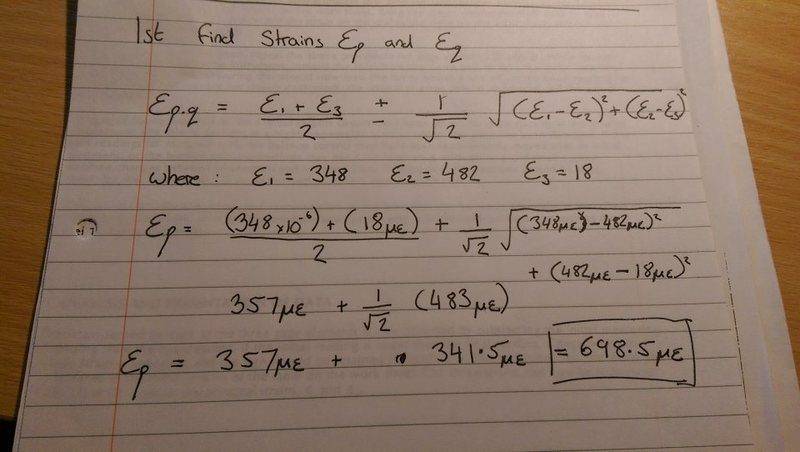 1st find strains Ep and Eq
Ep.q = E1 + E3 / 2 ± 1/√2 √(E1-E2)² + (E2-E3)²
where : E1 = 348 E2 = 482 E3 = 18
Ep = (348 x10⁻⁶) + (18με) / 2 + 1/√2 √(348με) - 482με)²
+ (482με - 18με)²
357με + 1/√2 (483με)
Ep = 357με + 341.5με = 698.5με